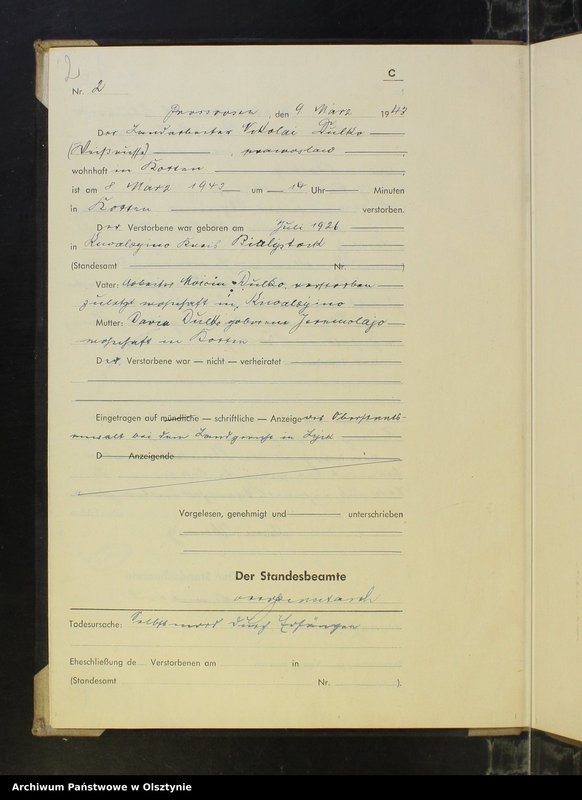 2
C
Nr. 2
Prostken, den 9 März 1943
Der Landarbeiter Nikolai Dulko
(Weißrusse), prawoslaw,
wohnhaft in Kosken,
ist am 8 März 1943 um 14 Uhr Minuten
in Kosken verstorben.
Der Verstorbene war geboren am Juli 1926
in Kreis Bialystock
(Standesamt Nr. )
Vater: Arbeiter Dulko, verstorben
zuletzt wohnhaft in
Mutter: Daria Dulko geborene
wohnhaft in Kosken
Der Verstorbene war — nicht — verheiratet
Eingetragen auf mündliche — schriftliche — Anzeige des Oberstaats-
anwalt bei dem Landgericht in Lyck
D Anzeigende
Vorgelesen, genehmigt und unterschrieben
Der Standesbeamte
Todesursache: Selbstmord durch Erhängen
Eheschließung de Verstorbenen am in
(Standesamt Nr. ).
Archiwum Państwowe w Olsztynie